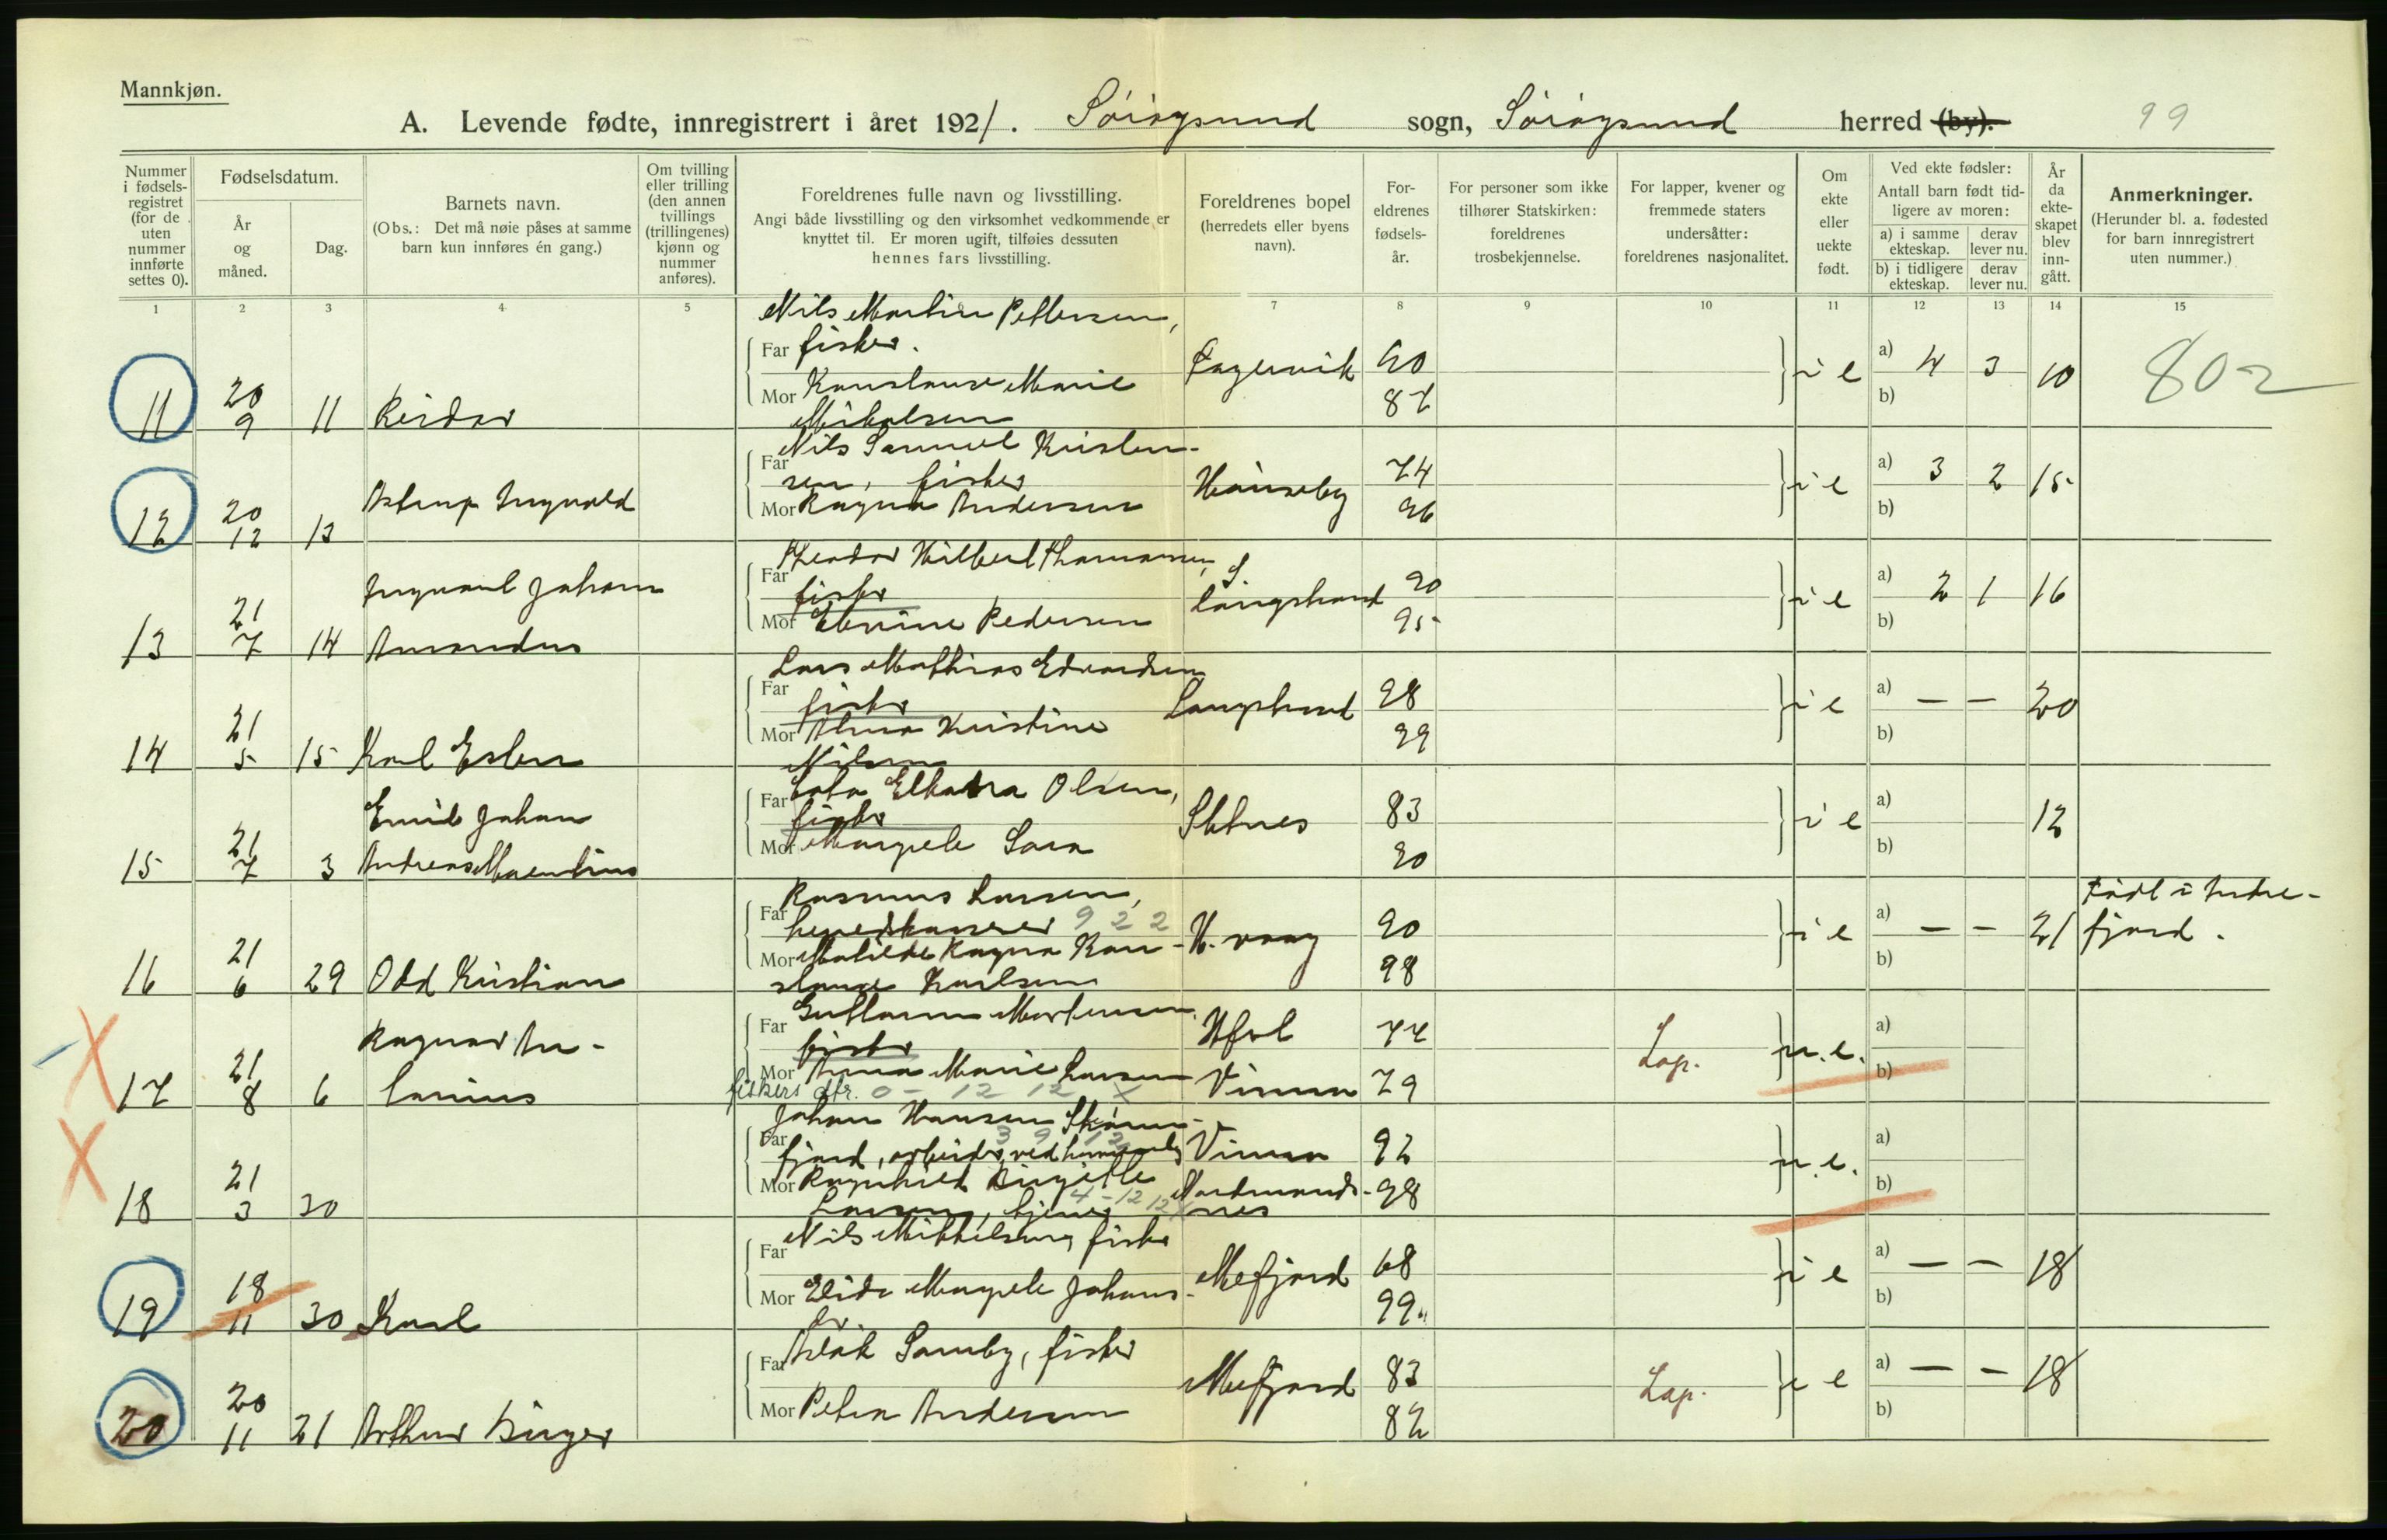 Mannkjøn.
A. Levende fødte, innregistrert i året 1921. Sørøysund sogn, Sørøysund herred (by). 99
Nummer i fødsels-registret (for de uten nummer innførte settes 0).
Fødselsdatum.
År og måned.
Dag.
Barnets navn.
(Obs.: Det må nøie påses at samme barn kun innføres én gang.)
Om tvilling eller trilling (den annen tvillings (trillingenes) kjønn og nummer anføres).
Foreldrenes fulle navn og livsstilling.
Angi både livsstilling og den virksomhet vedkommende er knyttet til. Er moren ugift, tilføies dessuten hennes fars livsstilling.
Foreldrenes bopel (herredets eller byens navn).
For-eldrenes fødsels-år.
For personer som ikke tilhører Statskirken: foreldrenes trosbekjennelse.
For lapper, kvener og fremmede staters undersåtter: foreldrenes nasjonalitet.
Om ekte eller uekte født.
Ved ekte fødsler:
Antall barn født tid-ligere av moren:
a) i samme ekteskap. derav lever nu.
b) i tidligere ekteskap. derav lever nu.
År da ekte-skapet blev inn-gått.
Anmerkninger.
(Herunder bl. a. fødested for barn innregistrert uten nummer.)
1 2 3 4 5 6 7 8 9 10 11 12 13 14 15
Nils Martin Pettersen,
Far fisker. Fagervik 90 i e a) 4 3 10 802
Mor Konstanse Marie 87 b)
11 20 9 11 Reidar Mikalsen
Nils Samuel Kristen-
Far sen, fisker Hønseby 74 i e a) 3 2 15
12 20 12 13 Astrup Ingvald Mor Ragna Andersen 96 b)
Theodor Hilbert Thomassen,
Far fisker S. Langstrand 90 i e a) 2 1 16
Ingvart Johan Mor Elvine Pedersen 95 b)
13 21 7 14 Amandus
Lars Mathias Edvardsen
Far fisker Langstrand 98 i e a) — — 20
Mor Alma Kristine 99 b)
14 21 5 15 Karl Esten Nilsen
Far Olsen,
fisker 83 i e a) 12
Emil Johan Mor Margrete Sara 90 b)
15 21 7 3 Andreas
Rasmus Larsen,
Far herredskasserer 922 H. vaag 90 i e a) — — 21 Født i Indre-
fjord.
Mor Matilde Ragna Kon- 98 b)
16 21 6 29 Odd Kristian stanse Karlsen
Guttorm Mortensen,
Far fisker 77 Lap. u. e. a)
Ragnar An-
Mor Anna Marie Larsen Vinna 79 b)
17 21 8 6 fiskers dtr. 0 - 12 12 X
Johan Hansen
Far fjord, arbeider ved 3 9 12 Vinna 92 u. e. a)
Mor Ragnhild Birgitte Nordmands- 98 b)
18 21 3 30 Larsen, tjener 4-12 12 X nes
Far Nils Mikkelsen, fisker Mefjord 68 i e a) — — 18
Mor Elida Margrete Johans- 99. b)
19 18 11 30 Karl dr
Far Aslak Samby, fisker Mefjord 83 Lap. i e a) — — 18
Mor Petra Andersen 82 b)
20 20 11 21 Arthur Birger